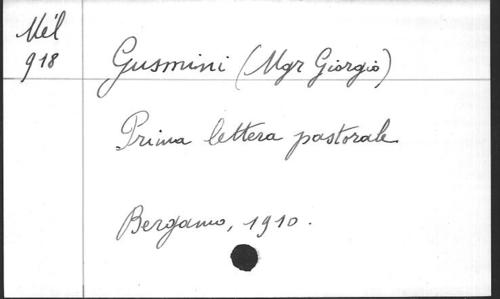 Mél
918
Gusmini (Mgr Giorgio)
Prima lettera pastorale
Bergamo, 1910.